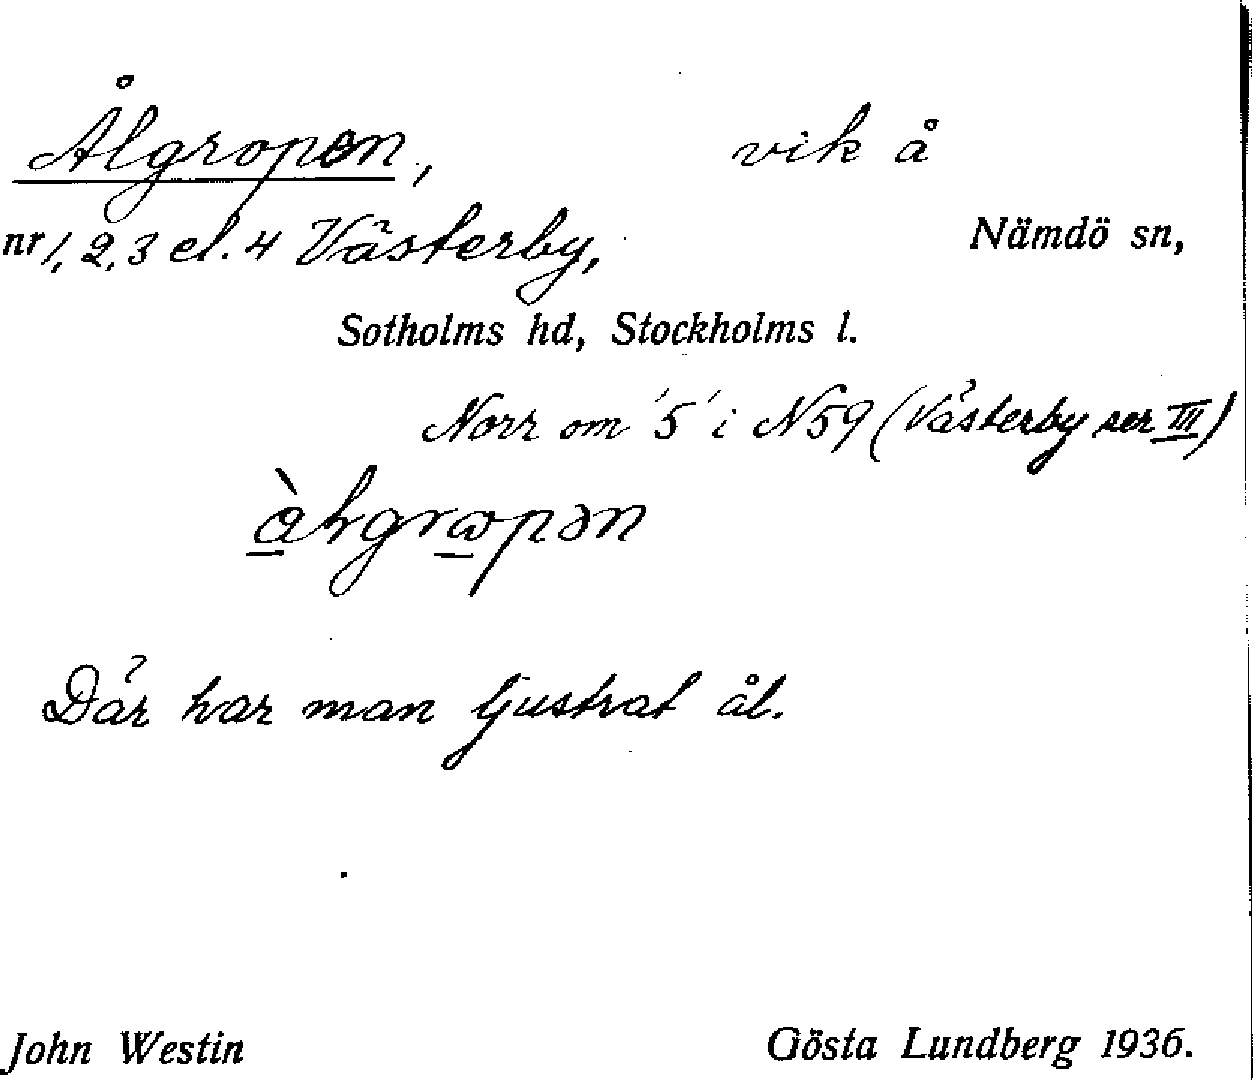 Ålgropen, vik å
nr 1, 2, 3 el. 4 Västerby, Nämdö sn,
Sotholms hd, Stockholms l.
Norr om '5' i N59 (Västerby ser III)
Där har man ljustrat ål.
John Westin Gösta Lundberg 1936.